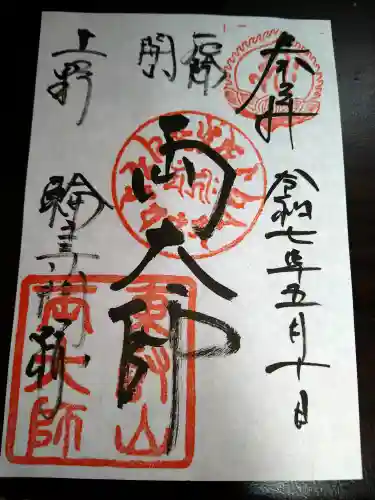 奉拝
令和七年五月十日
両大師
上野
輪王
東叡山
両大師